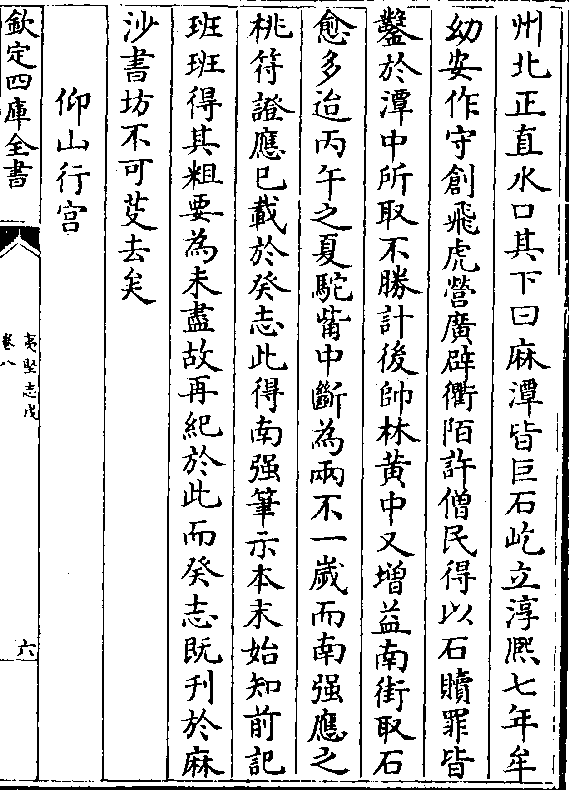 州北正直水口其下曰麻潭皆巨石屹立淳熙七年牟
幼安作守創飛虎營廣辟衢陌許僧民得以石贖罪皆
鑿於潭中所取不勝計後帥林黄中又增益南街取石
愈多迨丙午之夏駝觜中斷為兩不一歲而南强應之
桃符證應已載於癸志此得南强筆示本末始知前記
班班得其粗要為未盡故再紀於此而癸志既刊於麻
沙書坊不可芟去矣
仰山行宫
欽定四庫全書
夷堅志戊
卷八
六